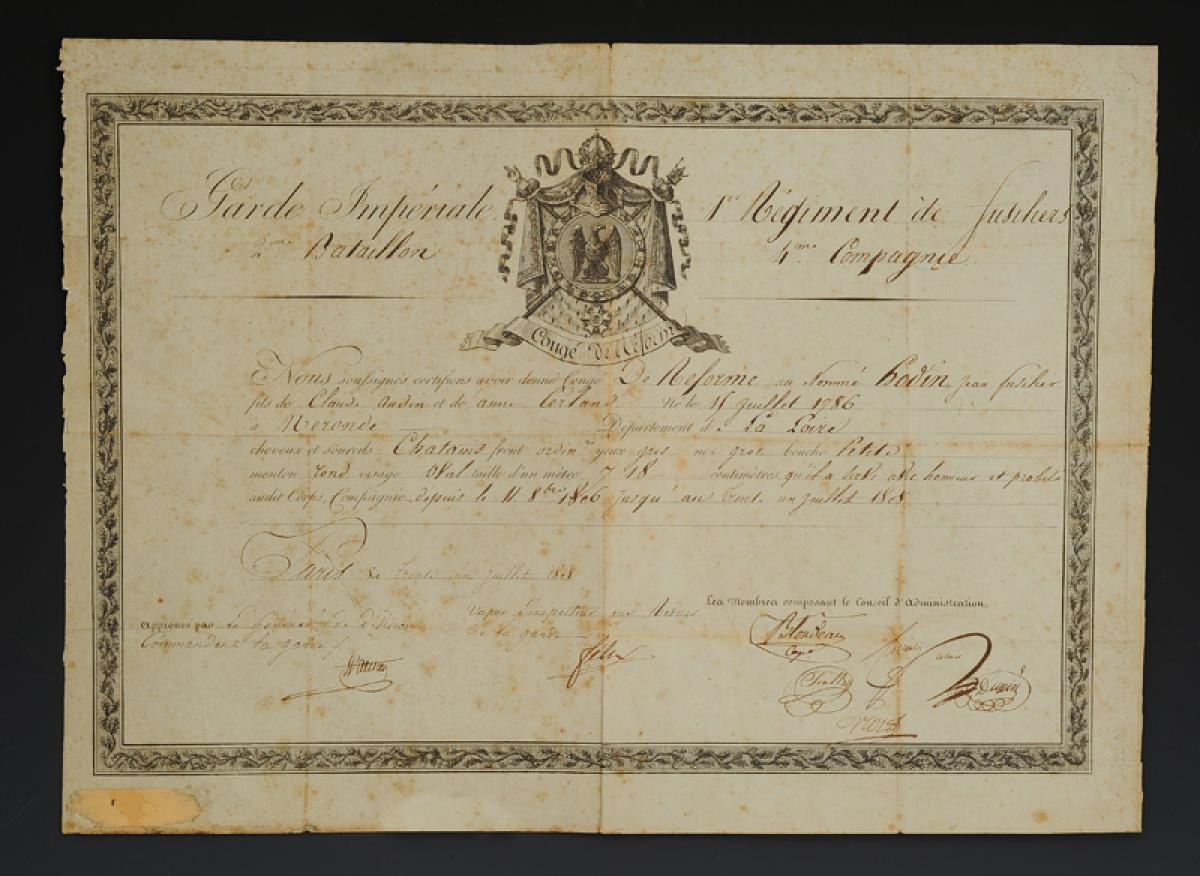 Garde Impériale
2me Bataillon
1er Régiment de fusiliers
4me Compagnie
Congé de Réforme
Nous soussignés certifions avoir donné Congé De Reforme au Nommé hodin Jean fusilier
fils de Claude audin et de anne Né le 15 Juillet 1786
à Neronde Département de La Loire
cheveux et sourcils Chatains front ordin yeux gris nez gros bouche Petite
menton rond visage Oval taille d'un mètre 7 18 centimètres qu'il a servi avec honneur et probité
audit Corps, Compagnie depuis le 11 8bre 1806 jusqu'au trente un juillet 1808
Paris le trente un juillet 1808
Les Membres composant le Conseil d'Administration.
Vu par l'inspecteur aux Revues
de la garde
Approuvé par le Général de division
Commandant la garde
Blondeau
Cape
felix